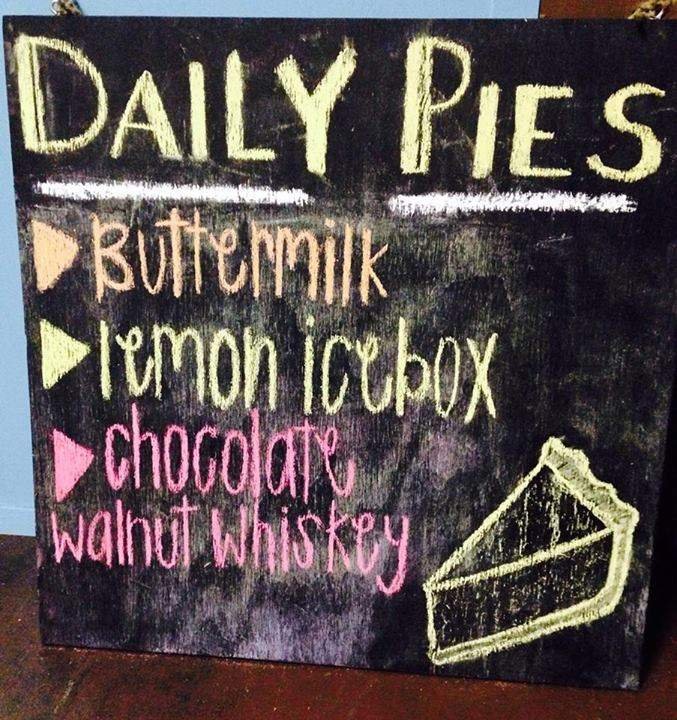 DAILY PIES
Buttermilk
lemon icebox
chocolate
walnut whiskey